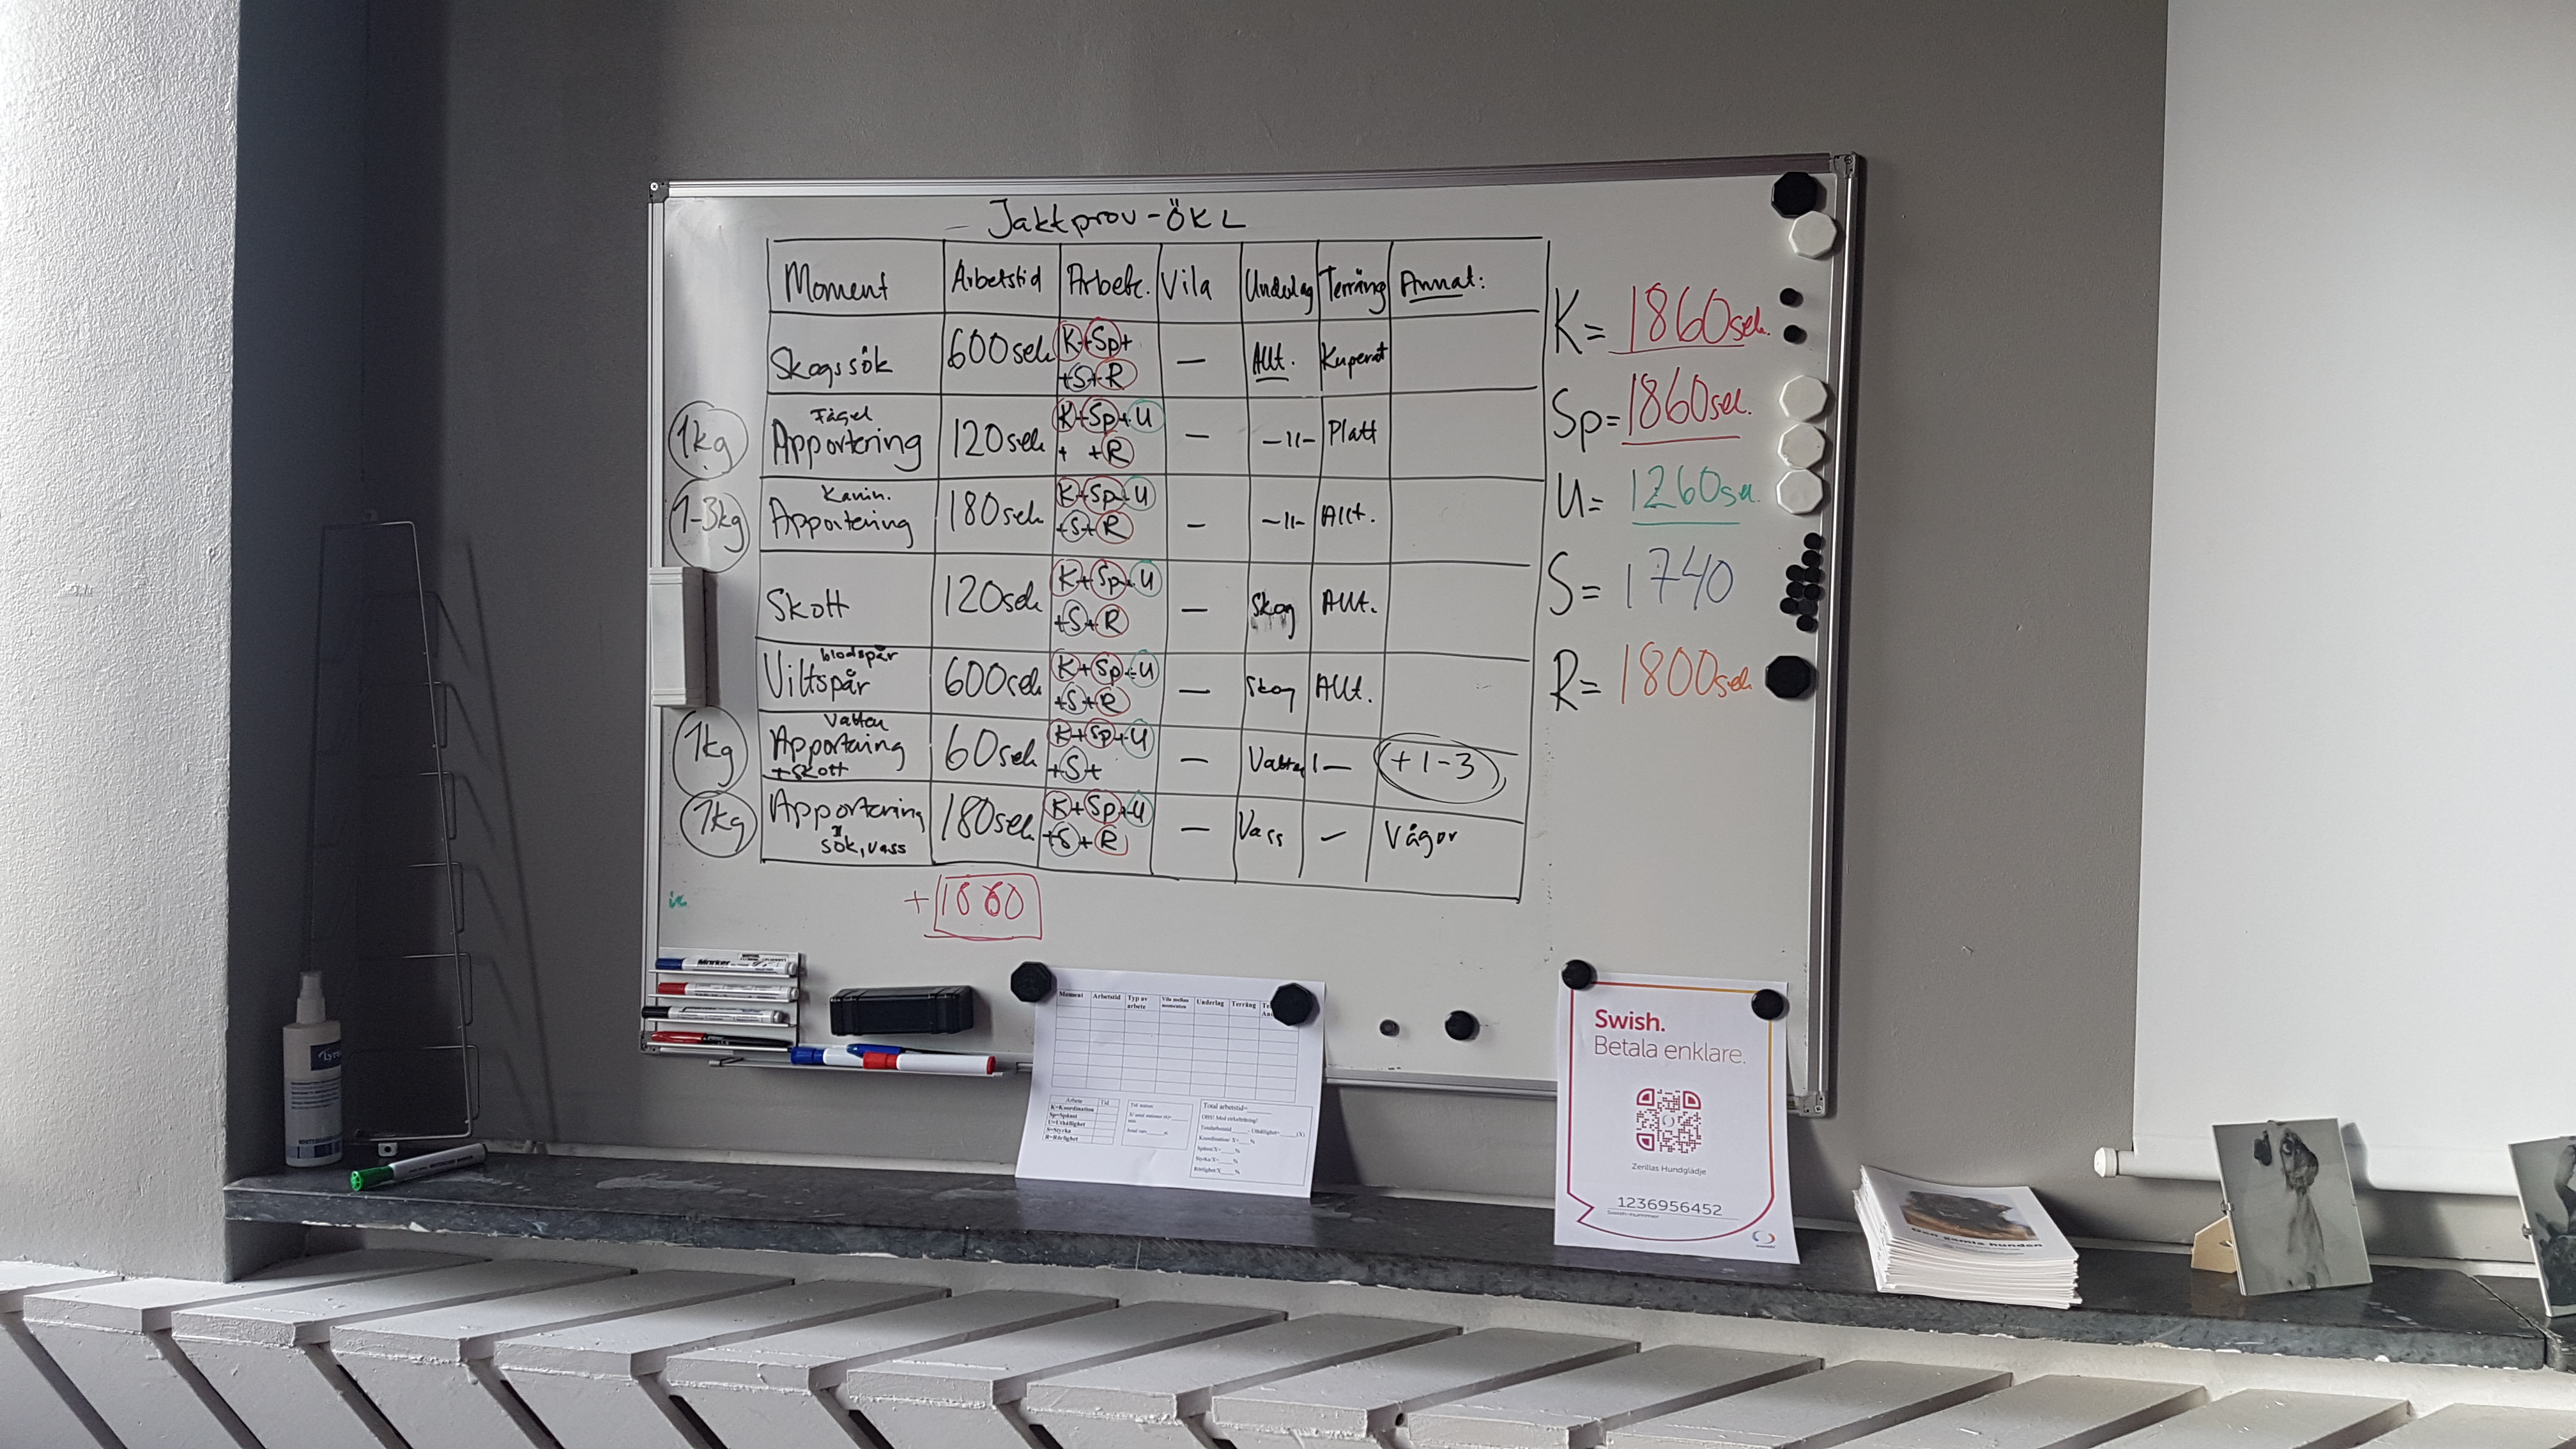 Jaktprov-ÖKL
Moment Arbetstid Arbete. Vila Underlag Terräng Annat:
Skogssök 600sek K+Sp+ +S+R — Allt. Kuperat
1kg Fågel Apportering 120sek K+Sp+U + +R — -11- Platt
1-3kg Kanin. Apportering 180sek K+Sp+U +S+R — -11- Allt.
Skott 120sek K+Sp+U +S+R — Skog Allt.
Viltspår blodspår 600sek K+Sp+U +S+R — Skog Allt.
1kg Vatten Apportering +skott 60sek K+Sp+U +S+ — Vatten — +1-3
1kg Apportering sök, vass 180sek K+Sp+U +S+R — Vass — Vågor
+ 1860
K= 1860sek.
Sp= 1860sek.
U= 1260sek.
S= 1740
R= 1800sek
Marker
Moment Arbetstid Typ av arbete Vila mellan momenten Underlag Terräng
Arbete Tid
K=Koordination
Sp=Spänst
U=Uthållighet
S=Styrka
R=Rörlighet
Total arbetstid=
Swish.
Betala enklare.
Zerillas Hundglädje
1236956452
Swish-nummer
Den gamla hunden